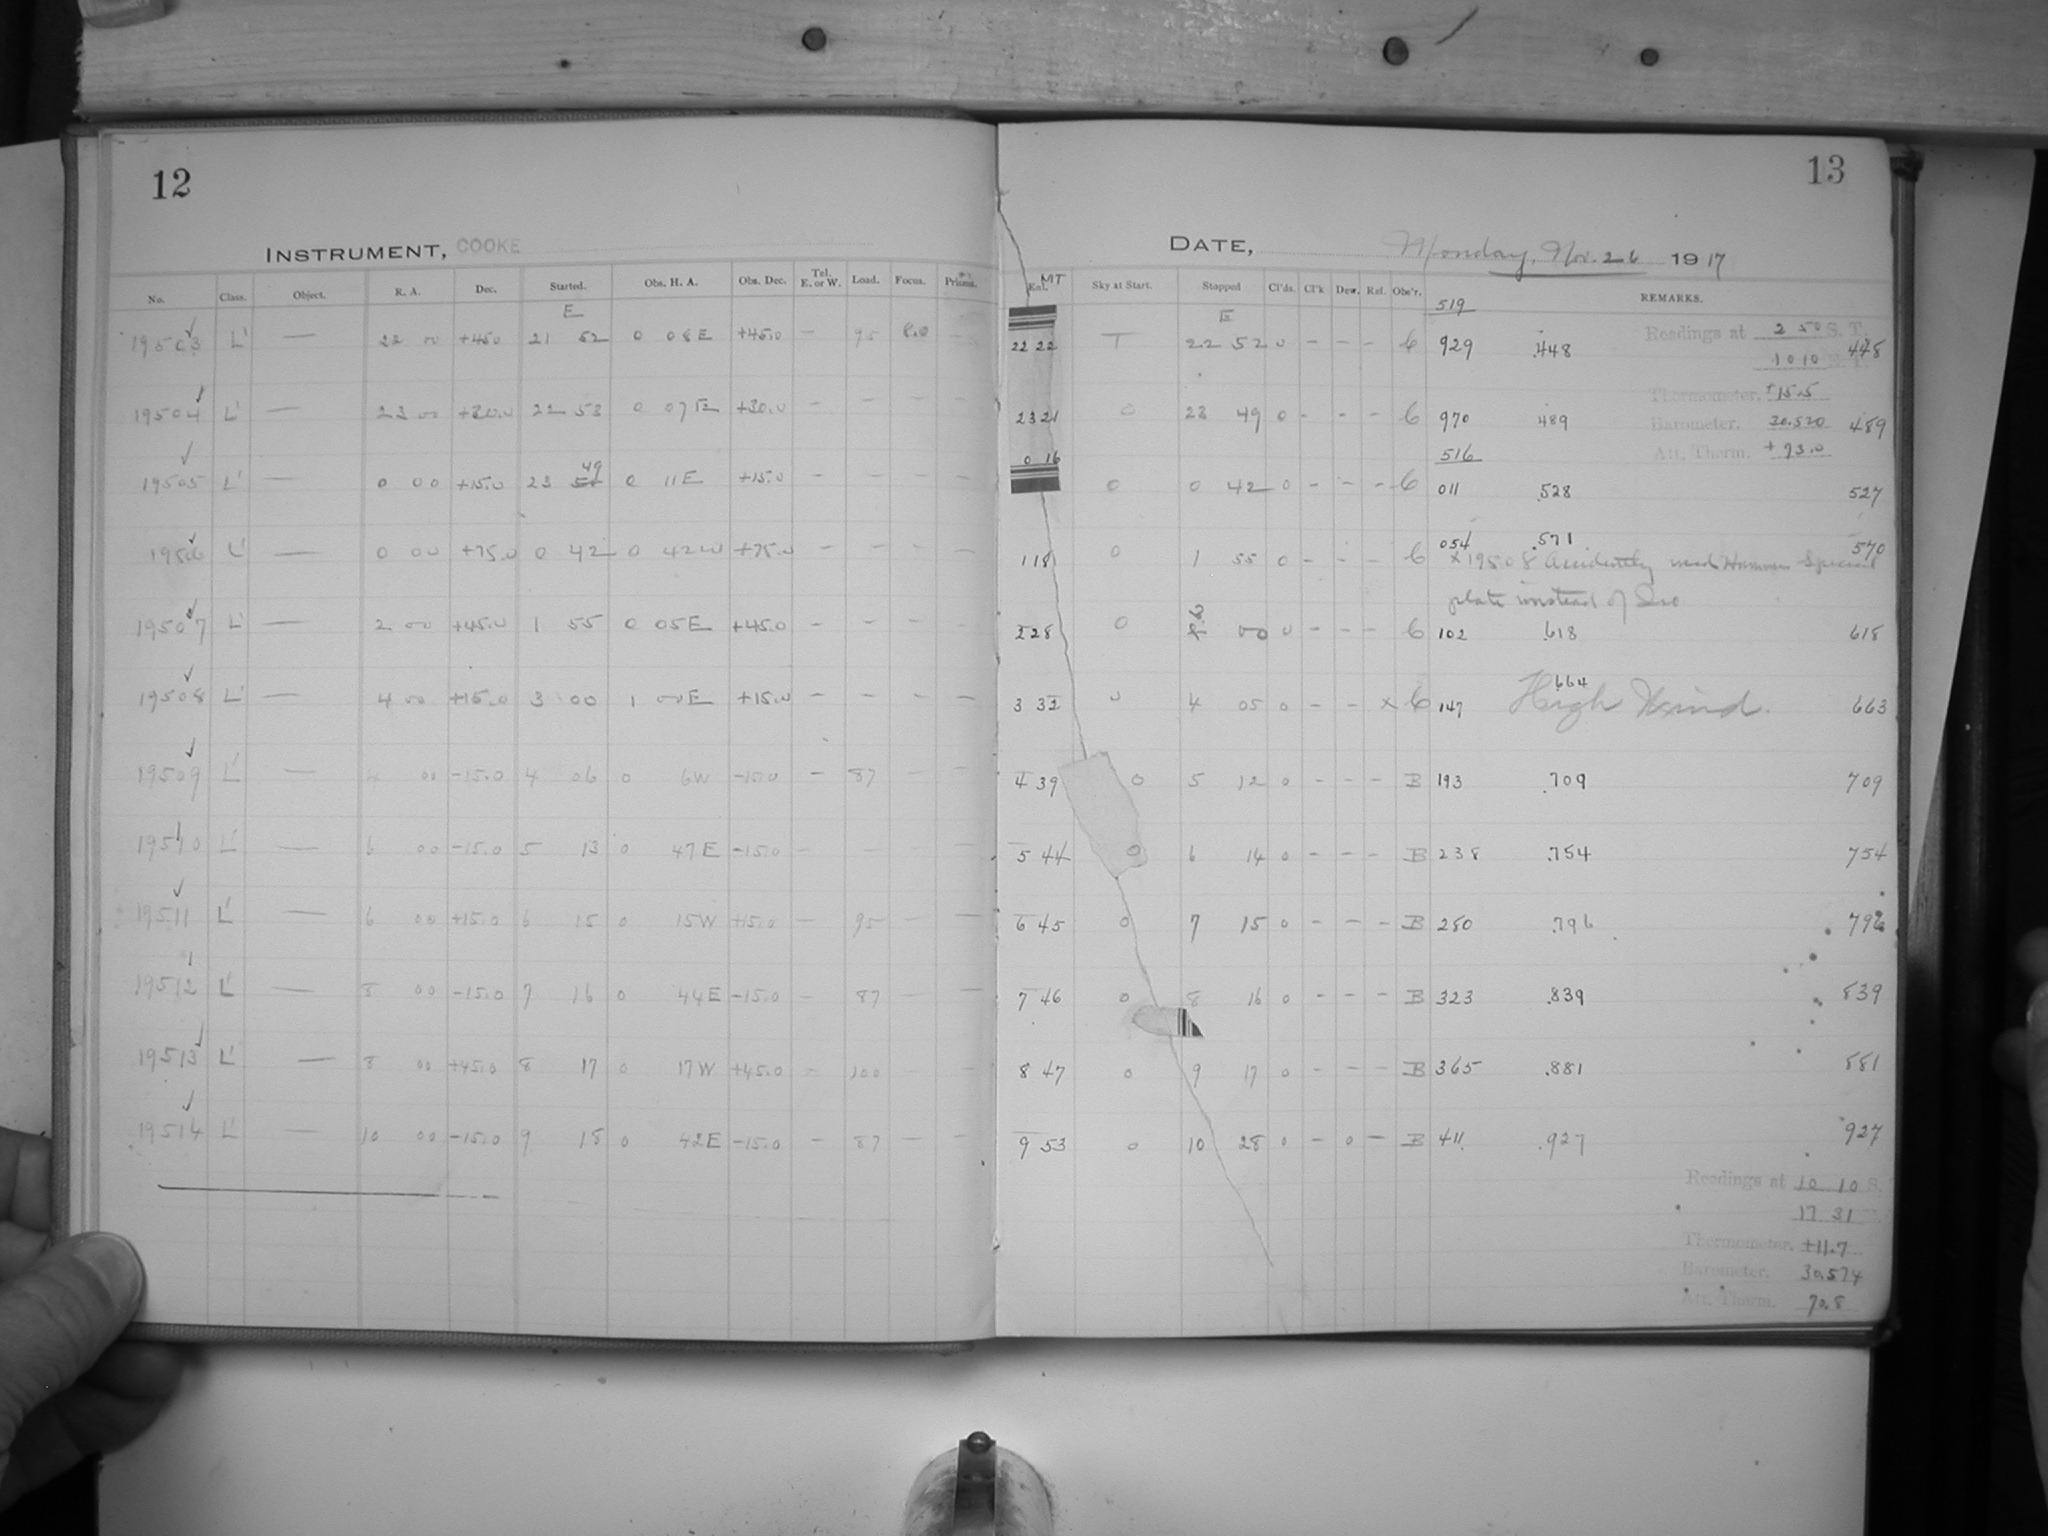 12
INSTRUMENT, COOKE
No. Class. Object. R. A. Dec. Started. Obs. H. A. Obs. Dec. Tel. E. or W. Load. Focus. Prisms.
E
19503 L' — 22 00 +45.0 21 52 0 08E +45.0 — 95 8.0 —
19504 L' — 23 00 +30.0 22 53 0 07E +30.0 — — — —
49
19505 L' — 0 00 +15.0 23 0 11E +15.0 — — — —
19506 L' — 0 00 +75.0 0 42 0 42W +75.0 — — — —
19507 L' — 2 00 +45.0 1 55 0 05E +45.0 — — — —
19508 L' — 4 00 +15.0 3 00 1 00E +15.0 — — — —
19509 L' — 4 00 -15.0 4 06 0 6W -15.0 — 87 — —
19510 L' — 6 00 -15.0 5 13 0 47E -15.0 — — — —
19511 L' — 6 00 +15.0 6 15 0 15W +15.0 — 95 — —
19512 L' — 8 00 -15.0 7 16 0 44E -15.0 — 87 — —
19513 L' — 8 00 +45.0 8 17 0 17W +45.0 — 100 — —
19514 L' — 10 00 -15.0 9 18 0 42E -15.0 — 87 — —
13
DATE, Monday, Nov. 26 1917
MT
Exl. Sky at Start. Stopped Cl'ds. Cl'k Dew. Rel. Obs'r. REMARKS.
519
E
Readings at 2 50 S. T.
22 22 T 22 52 0 - - - 6 929 .448 448
10 10
Thermometer. +15.5
23 21 0 23 49 0 - - - 6 970 489 489
Barometer. 30.520
516
Att. Therm. +73.0
0 16 0 0 42 0 - - - 6 011 .528 527
1 18 0 1 55 0 - - - 6 054 .571 570
x 19508 Accidently used Hammer Special
plate instead of
2 28 0 3 00 0 - - - 6 102 .618 618
3 32 0 4 05 0 - - x 6 147 .664 663
High Wind.
4 39 0 5 12 0 - - - B 193 .709 709
5 44 0 6 14 0 - - - B 238 .754 754
6 45 0 7 15 0 - - - B 280 .796 796
7 46 0 8 16 0 - - - B 323 .839 839
8 47 0 9 17 0 - - - B 365 .881 881
9 53 0 10 28 0 - 0 - B 411 .927 927
Readings at 10 10 S.
17 31
Thermometer. +11.7
Barometer. 30.574
Att. Therm. 70.8